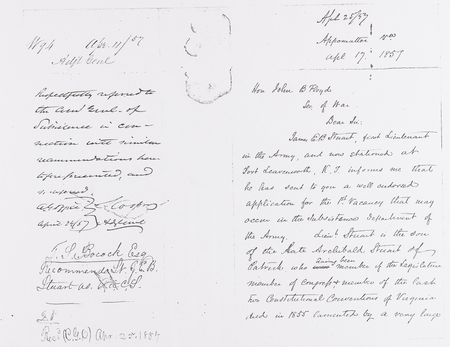 W94 Apr. 11/57
Adjt Genl
Respectfully referred to
the Com. Genl. of
Subsistence in con-
nection with similar
recommendations here-
tofore presented, and
A.G. Office S. Cooper
April 24/57 A. Genl
T. S. Bocock Esq
Recommends Lt. J.E.B.
Stuart as A.C.S.
Recd (C.G.O) Apr. 25. 1857
Apl 25/57
Appomattox
Apl 17. 1857
Hon John B Floyd
Sec of War
Dear Sir:
James E B Stuart, first Lieutenant
in the Army, and now stationed at
Fort Leavenworth, K.T. informs me that
he has sent to you a well endorsed
application for the 1st Vacancy that may
occur in the Subsistence Department of
the Army. Lieut Stuart is the son
of the late Archibald Stuart of
Patrick who having been member of the Legislature
member of Congress & member of the last
two Constitutional Conventions of Virginia
died in 1855 lamented by a very large